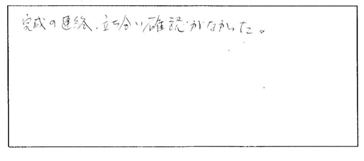 完成の連絡、立ち合い確認がなかった。